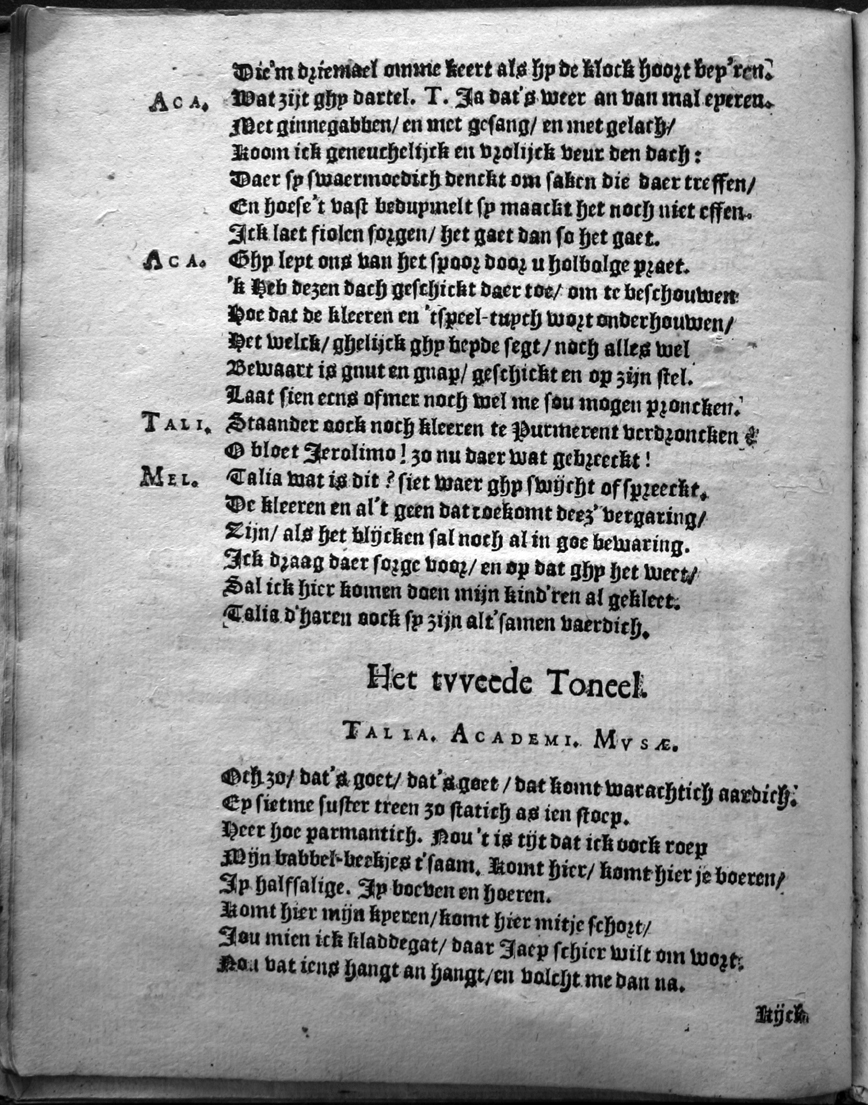 Die'm driemael omme keert als hy de klock hoort bey'ren.
ACA. Wat zijt ghy dartel. T. Ja dat's weer an van mal eyeren.
Met ginnegabben/ en met gesang/ en met gelach/
Koom ick geneuchelijck en vrolijck veur den dach:
Daer sy swaermoedich denckt om saken die daer treffen/
En hoese't vast beduymelt sy maackt het noch niet effen.
Ick laet fiolen sorgen/ het gaet dan so het gaet.
ACA. Ghy leyt ons van het spoor door u holbolge praet.
'k Heb dezen dach geschickt daer toe/ om te beschouwen
Hoe dat de kleeren en 'tspeel-tuych wort onderhouwen/
Het welck/ ghelijck ghy beyde segt/ noch alles wel
Bewaart is gnut en gnap/ geschickt en op zijn stel.
Laat sien eens ofmer noch wel me sou mogen proncken.
TALI. Staander oock noch kleeren te Purmerent verdroncken?
O bloet Jerolimo! zo nu daer wat gebreeckt!
MEL. Talia wat is dit? siet waer ghy swijcht of spreeckt.
De kleeren en al't geen dat toekomt deez' vergaring/
Zijn/ als het blijcken sal noch al in goe bewaring.
Ick draag daer sorge voor/ en op dat ghy het weet/
Sal ick hier komen doen mijn kind'ren al gekleet.
Talia d'haren oock sy zijn alt'samen vaerdich.
Het tvveede Toneel.
TALIA. ACADEMI. MVSÆ.
Och zo/ dat's goet/ dat's goet/ dat komt warachtich aardich.
Ey sietme suster treen zo statich as ien stoep.
Heer hoe parmantich. Nou 't is tijt dat ick oock roep
Mijn babbel-bekjes t'saam. Komt hier/ komt hier je boeren/
Jy halfsalige. Jy boeven en hoeren.
Komt hier mijn kyeren/ komt hier mitje schort/
Jou mien ick kladdegat/ daar Jaep schier wilt om wort.
Nou vat iens hangt an hangt/ en volcht me dan na.
Kijck